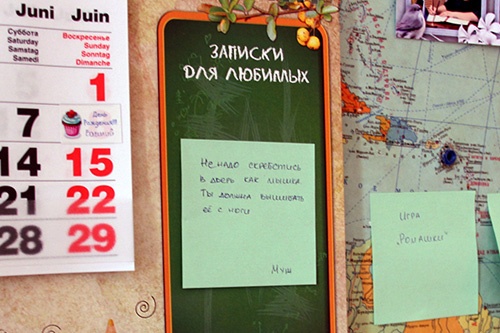 Juni Juin
Суббота Воскресенье
Saturday Sunday
Samstag Sonntag
Samedi Dimanche
1
7
День
Рождения!!!
14 15
21 22
28 29
ЗАПИСКИ
ДЛЯ ЛЮБИМЫХ
Не надо скребстись
в дверь как мышка.
Ты должна вышибать
её с ноги
Муш
Игра
„Ромашки"